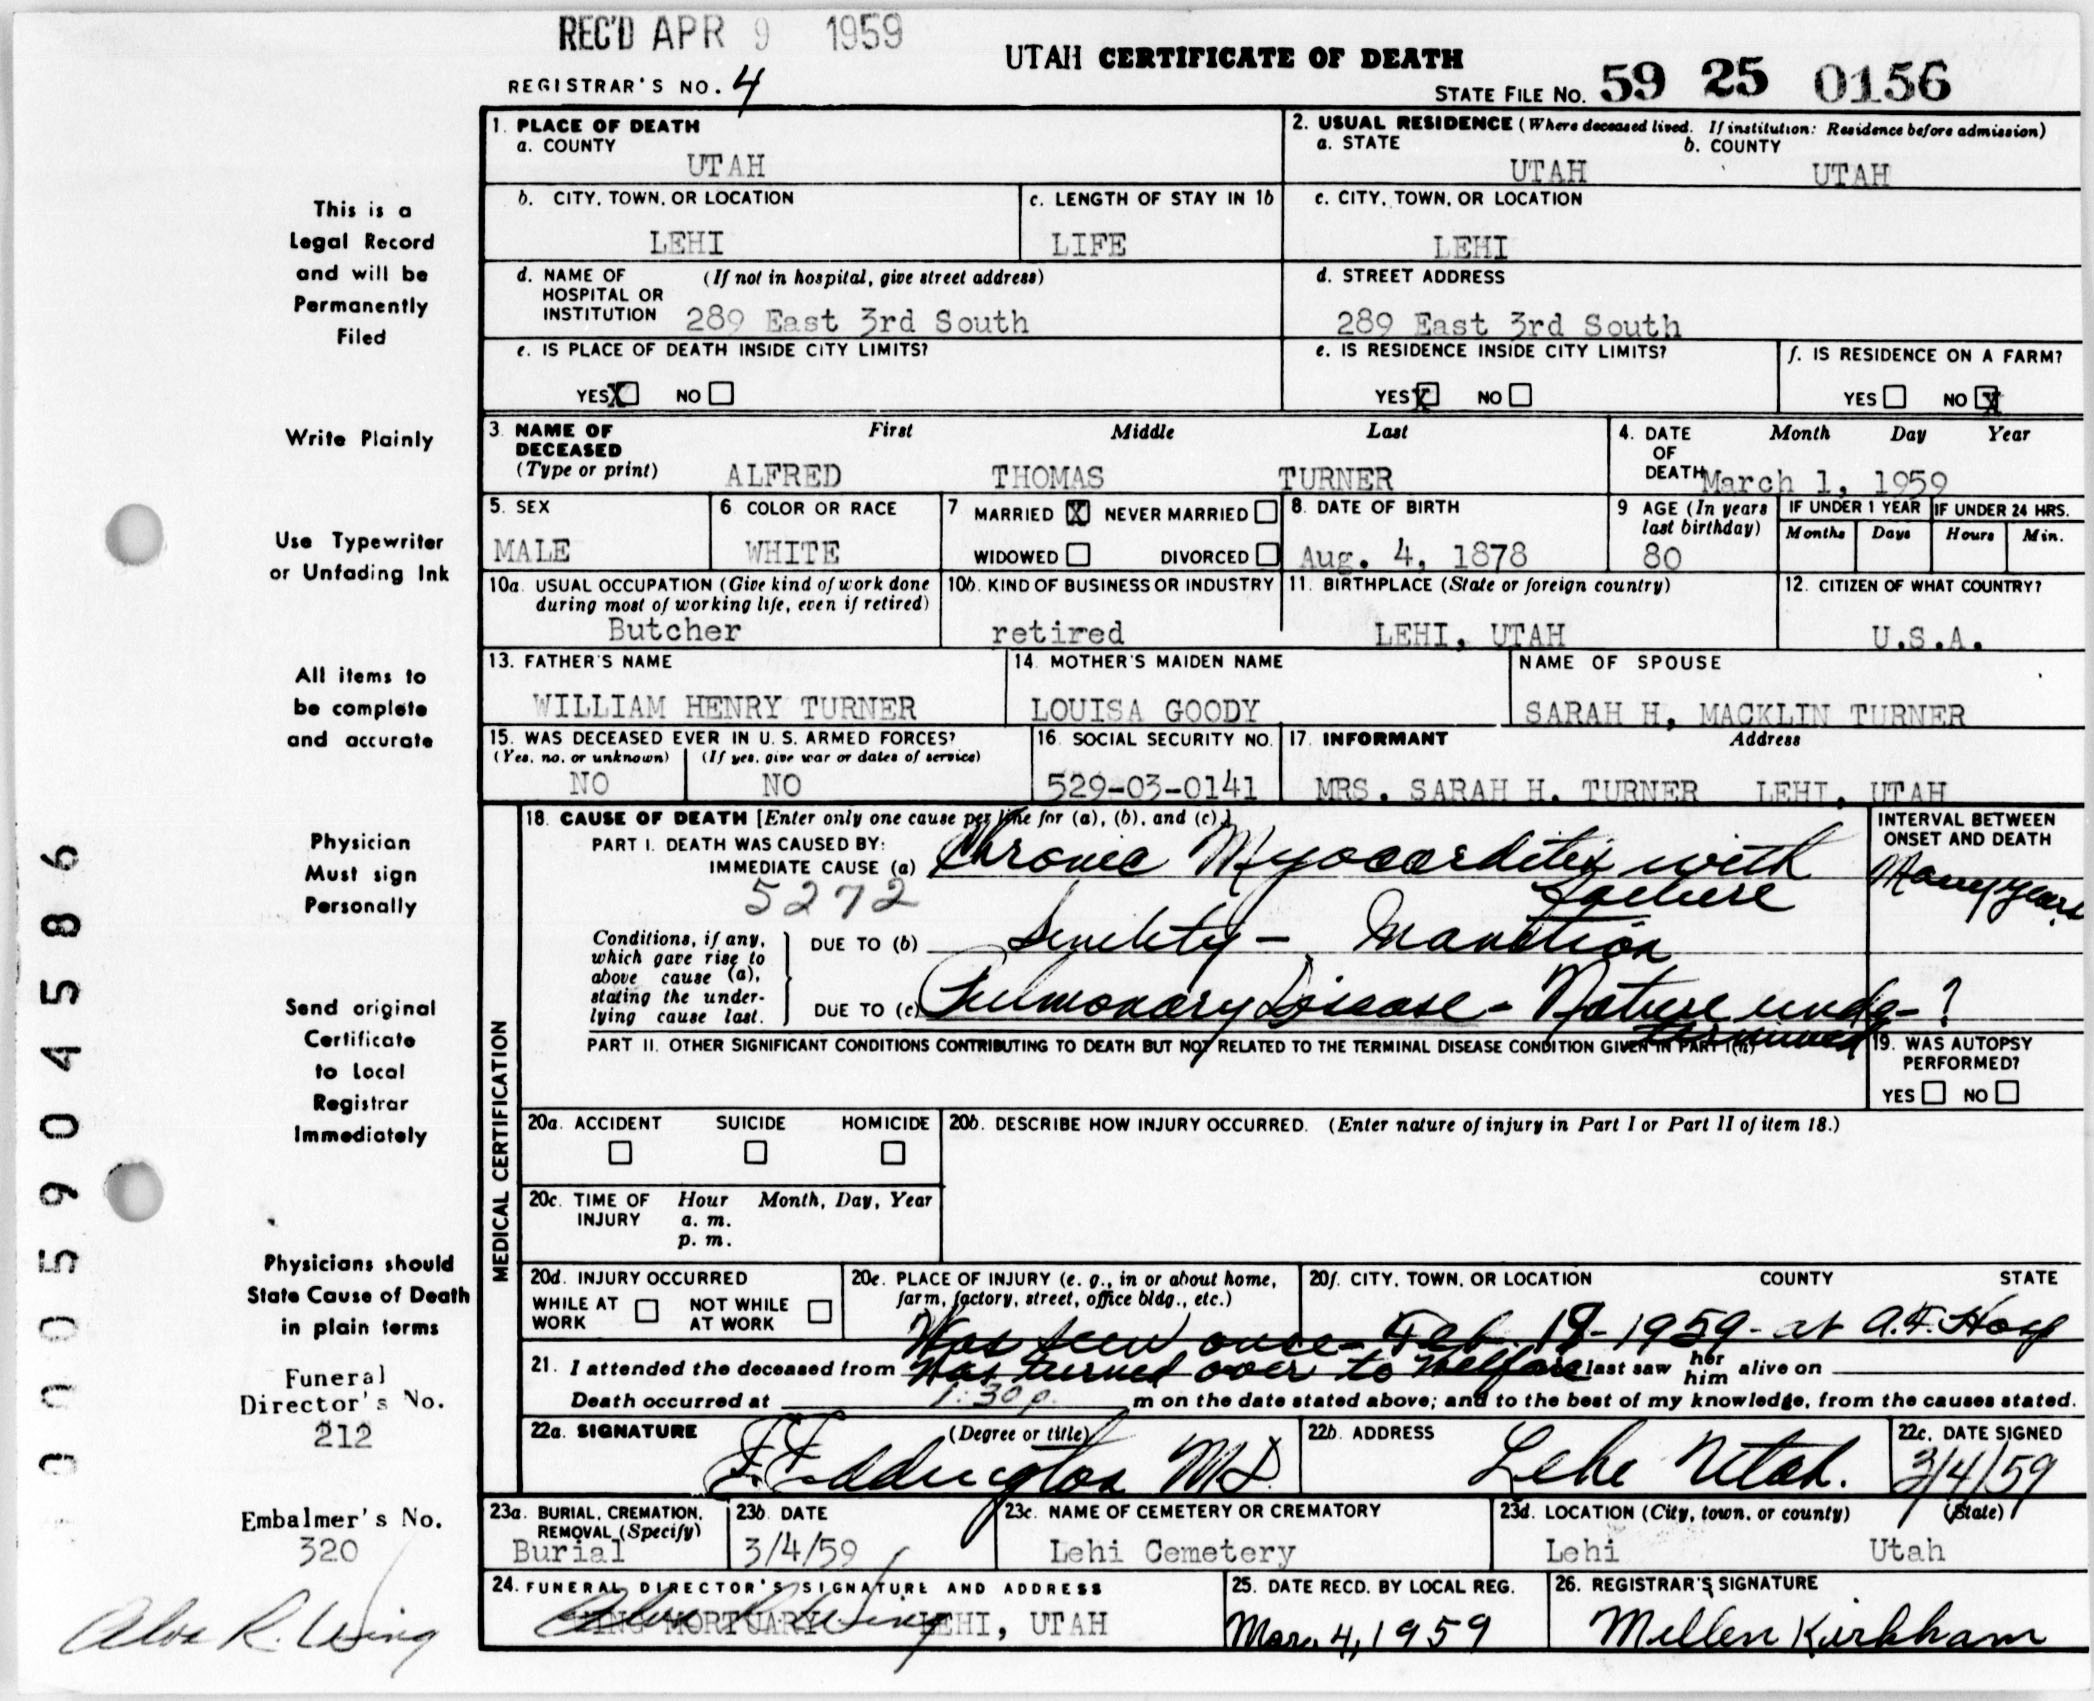 REC'D APR 9 1959
UTAH CERTIFICATE OF DEATH
REGISTRAR'S NO. 4
STATE FILE NO. 59 25 0156
This is a
Legal Record
and will be
Permanently
Filed
Write Plainly
Use Typewriter
or Unfading Ink
All items to
be complete
and accurate
Physician
Must sign
Personally
Send original
Certificate
to Local
Registrar
Immediately
Physicians should
State Cause of Death
in plain terms
Funeral
Director's No.
212
Embalmer's No.
320
Alva R. Wing
000590 4586
1. PLACE OF DEATH
a. COUNTY
UTAH
2. USUAL RESIDENCE (Where deceased lived. If institution: Residence before admission)
a. STATE b. COUNTY
UTAH UTAH
b. CITY, TOWN, OR LOCATION
LEHI
c. LENGTH OF STAY IN 1b
LIFE
c. CITY, TOWN, OR LOCATION
LEHI
d. NAME OF (If not in hospital, give street address)
HOSPITAL OR
INSTITUTION 289 East 3rd South
d. STREET ADDRESS
289 East 3rd South
e. IS PLACE OF DEATH INSIDE CITY LIMITS?
YES X NO
e. IS RESIDENCE INSIDE CITY LIMITS?
YES X NO
f. IS RESIDENCE ON A FARM?
YES NO X
3. NAME OF First Middle Last
DECEASED
(Type or print) ALFRED THOMAS TURNER
4. DATE Month Day Year
OF
DEATH March 1, 1959
5. SEX
MALE
6 COLOR OR RACE
WHITE
7 MARRIED X NEVER MARRIED
WIDOWED DIVORCED
8. DATE OF BIRTH
Aug. 4, 1878
9 AGE (In years
last birthday)
80
IF UNDER 1 YEAR IF UNDER 24 HRS.
Months Days Hours Min.
10a. USUAL OCCUPATION (Give kind of work done
during most of working life, even if retired)
Butcher
10b. KIND OF BUSINESS OR INDUSTRY
retired
11. BIRTHPLACE (State or foreign country)
LEHI, UTAH
12. CITIZEN OF WHAT COUNTRY?
U.S.A.
13. FATHER'S NAME
WILLIAM HENRY TURNER
14. MOTHER'S MAIDEN NAME
LOUISA GOODY
NAME OF SPOUSE
SARAH H. MACKLIN TURNER
15. WAS DECEASED EVER IN U. S. ARMED FORCES?
(Yes, no, or unknown) (If yes, give war or dates of service)
NO NO
16. SOCIAL SECURITY NO.
529-03-0141
17. INFORMANT Address
MRS. SARAH H. TURNER LEHI, UTAH
MEDICAL CERTIFICATION
18. CAUSE OF DEATH [Enter only one cause per line for (a), (b), and (c).]
PART I. DEATH WAS CAUSED BY:
IMMEDIATE CAUSE (a) Chronic Myocarditis with
failure
5272
INTERVAL BETWEEN
ONSET AND DEATH
Many years
Conditions, if any,
which gave rise to
above cause (a),
stating the under-
lying cause last.
DUE TO (b) Senility - Inanition
DUE TO (c) Pulmonary Disease - Nature unde- ?
termined
PART II. OTHER SIGNIFICANT CONDITIONS CONTRIBUTING TO DEATH BUT NOT RELATED TO THE TERMINAL DISEASE CONDITION GIVEN IN PART I(a)
19. WAS AUTOPSY
PERFORMED?
YES NO
20a. ACCIDENT SUICIDE HOMICIDE
20b. DESCRIBE HOW INJURY OCCURRED. (Enter nature of injury in Part I or Part II of item 18.)
20c. TIME OF Hour Month, Day, Year
INJURY a. m.
p. m.
20d. INJURY OCCURRED
WHILE AT NOT WHILE
WORK AT WORK
20e. PLACE OF INJURY (e. g., in or about home,
farm, factory, street, office bldg., etc.)
20f. CITY, TOWN, OR LOCATION COUNTY STATE
Was seen once - Feb. 19 - 1959 - at A.F. Hosp
21. I attended the deceased from Was turned over to Welfare last saw her him alive on
Death occurred at 1:30 p. m on the date stated above; and to the best of my knowledge, from the causes stated.
22a. SIGNATURE (Degree or title)
F. Eddington MD.
22b. ADDRESS
Lehi Utah.
22c. DATE SIGNED
3/4/59
23a. BURIAL, CREMATION,
REMOVAL (Specify)
Burial
23b. DATE
3/4/59
23c. NAME OF CEMETERY OR CREMATORY
Lehi Cemetery
23d. LOCATION (City, town, or county) (State)
Lehi Utah
24. FUNERAL DIRECTOR'S SIGNATURE AND ADDRESS
Alva R. Wing
WING MORTUARY LEHI, UTAH
25. DATE RECD. BY LOCAL REG.
Mar. 4, 1959
26. REGISTRAR'S SIGNATURE
Mellen Kirkham